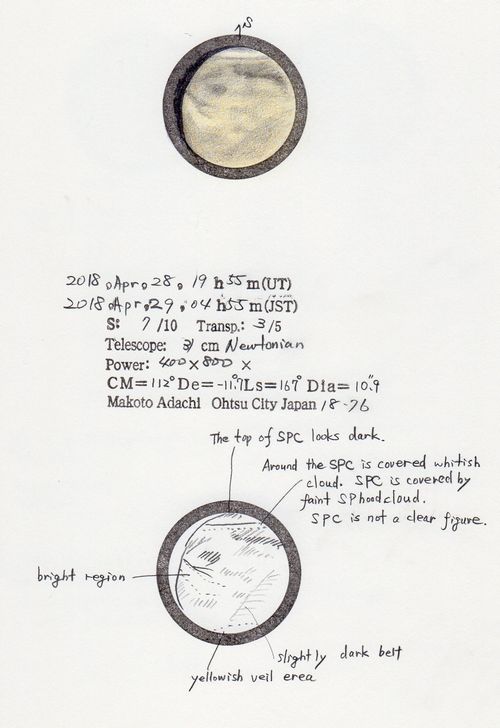 S
2018, Apr, 28, 19 h 55 m (UT)
2018, Apr, 29, 04 h 55 m (JST)
S: 7/10 Transp.: 3/5
Telescope: 31 cm Newtonian
Power: 400 × 800 ×
CM= 112° De= -11.7° Ls= 167° Dia= 10".9
Makoto Adachi Ohtsu City Japan 18-76
The top of SPC looks dark.
Around the SPC is covered whitish
cloud. SPC is covered by
faint SP hood cloud.
SPC is not a clear figure.
bright region
slightly dark belt
yellowish veil erea